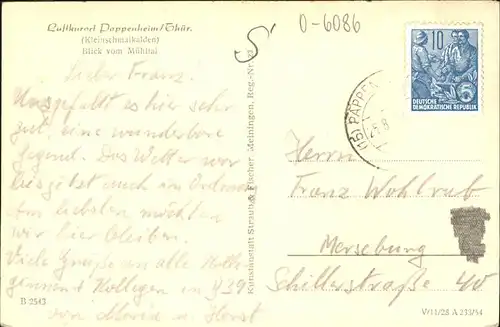 Luftkurort Pappenheim/Thür.
(Kleinschmalkalden)
Blick vom Mühltal
O-6086
Lieber Franz!
Uns gefällt es hier sehr
gut, eine wunderbare
Gegend. Das Wetter war
bis jetzt auch in Ordnung
Am liebsten möchten
wir hier bleiben.
Viele Grüße an alle
Kollegen in
von Maria u. Horst
B 2543
Kunstanstalt Straub & Fischer, Meiningen, Reg.-Nr.
10
DEUTSCHE
DEMOKRATISCHE REPUBLIK
(15) PAPPEN
Herrn
Franz Wohlrab
Merseburg
Schillerstraße 40
V/11/28 A 213/54